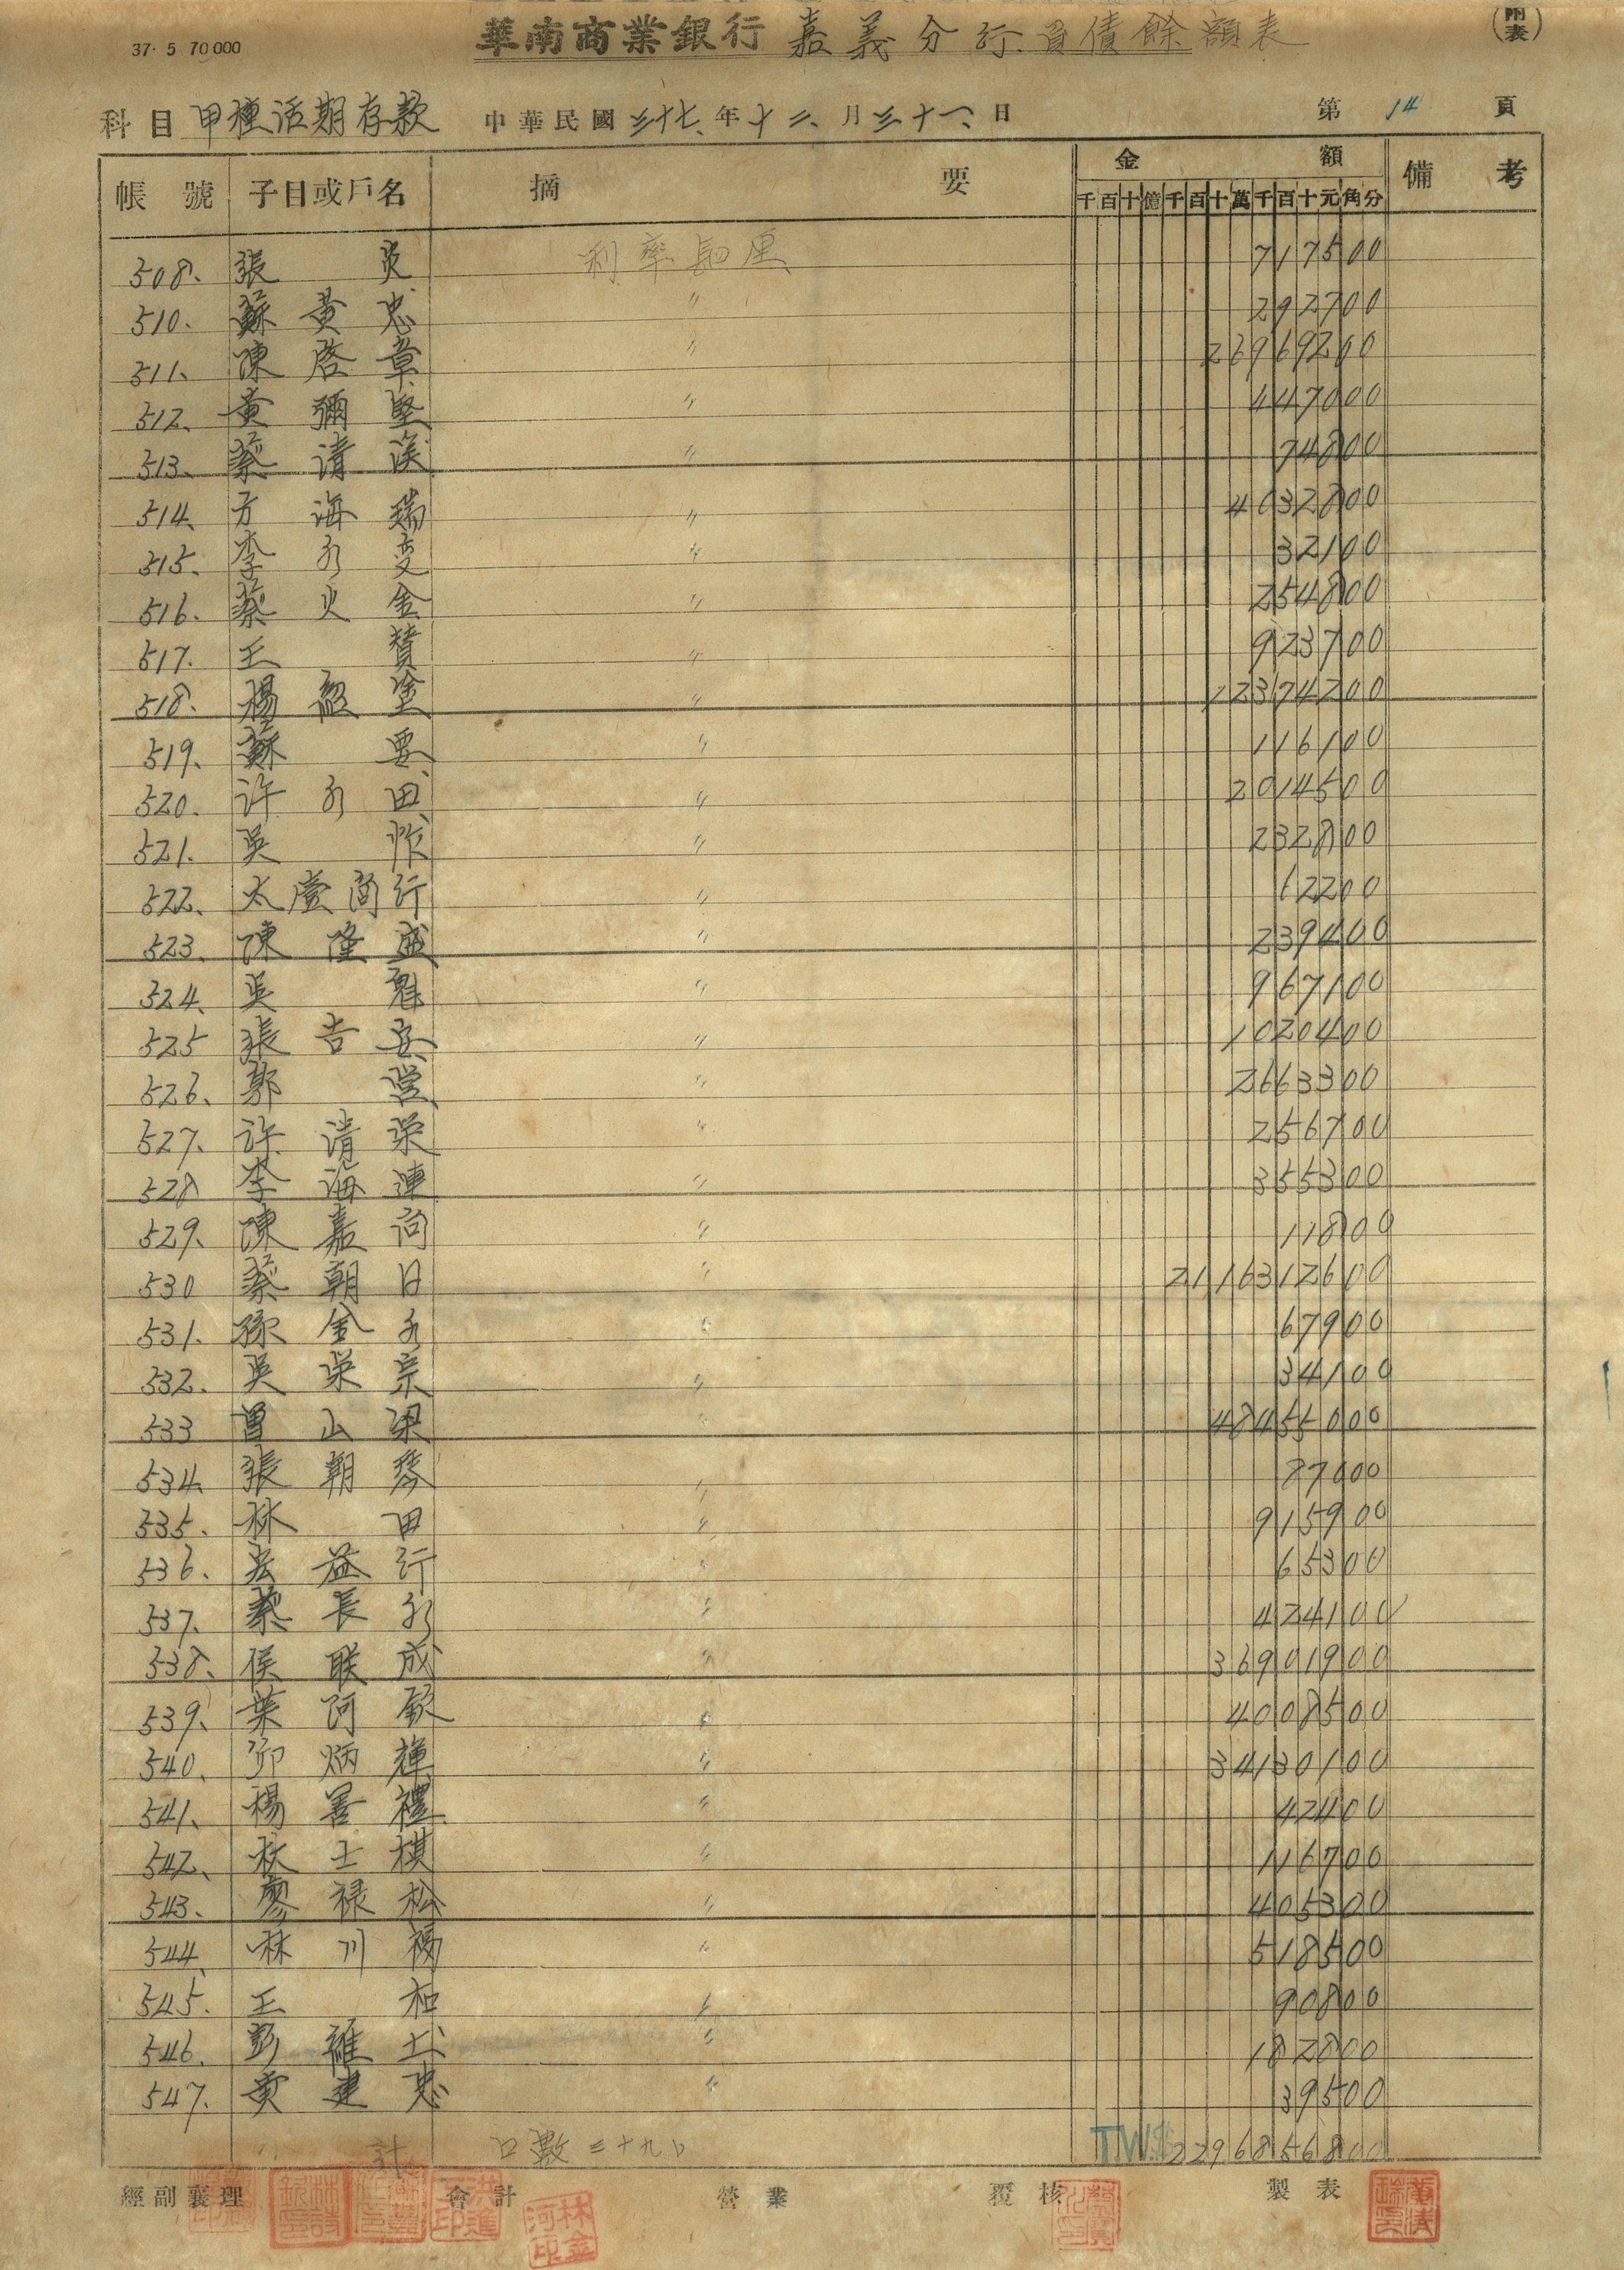 37· 5 70000
華南商業銀行 嘉義分行 負債餘額表
(附表)
科目 甲種活期存款 中華民國 三十七年 十二月 三十一日 第 14 頁
帳號 子目或戶名 摘要 金額 備考
千百十億千百十萬千百十元角分
508. 張 炎 利率 7175 00
510. 蘇黃忠 〃 2927 00
511. 陳啓章 〃 269692 00
512. 黃彌堅 〃 4470 00
513. 蔡清溪 〃 748 00
514. 方海瑞 〃 40328 00
515. 李永 〃 321 00
516. 蔡火金 〃 2548 00
517. 王 贊 〃 9237 00
518. 楊塗 〃 123742 00
519. 蘇 要 〃 1161 00
520. 许永田 〃 20145 00
521. 吳 炸 〃 2328 00
522. 太商行 〃 622 00
523. 陳隆盛 〃 2394 00
524. 吳 魁 〃 9671 00
525 張吉安 〃 10204 00
526. 郭 営 〃 26633 00
527. 许清栄 〃 2567 00
528 李海連 〃 3553 00
529. 陳嘉 〃 118 00
530 蔡朝日 〃 21163126 00
531. 孫金永 〃 679 00
532. 吳栄宗 〃 341 00
533 曽山梁 〃 484550 00
534. 張朝琴 〃 870 00
535. 林 田 〃 9159 00
536. 宏益行 〃 653 00
537. 蔡長永 〃 4241 00
538. 侯联成 〃 369019 00
539. 葉阿欽 〃 40085 00
540. 卯炳輝 〃 341301 00
541. 楊善禮 〃 424 00
542. 秋士棋 〃 1167 00
543. 廖禄松 〃 4053 00
544. 林川 〃 5185 00
545. 王 和 〃 908 00
546. 彭維士 〃 1828 00
547. 黄建忠 〃 395 00
計 口數 三十九口 TW$ 22968568 00
經副襄理 會計 營業 覆核 製表
林金河印